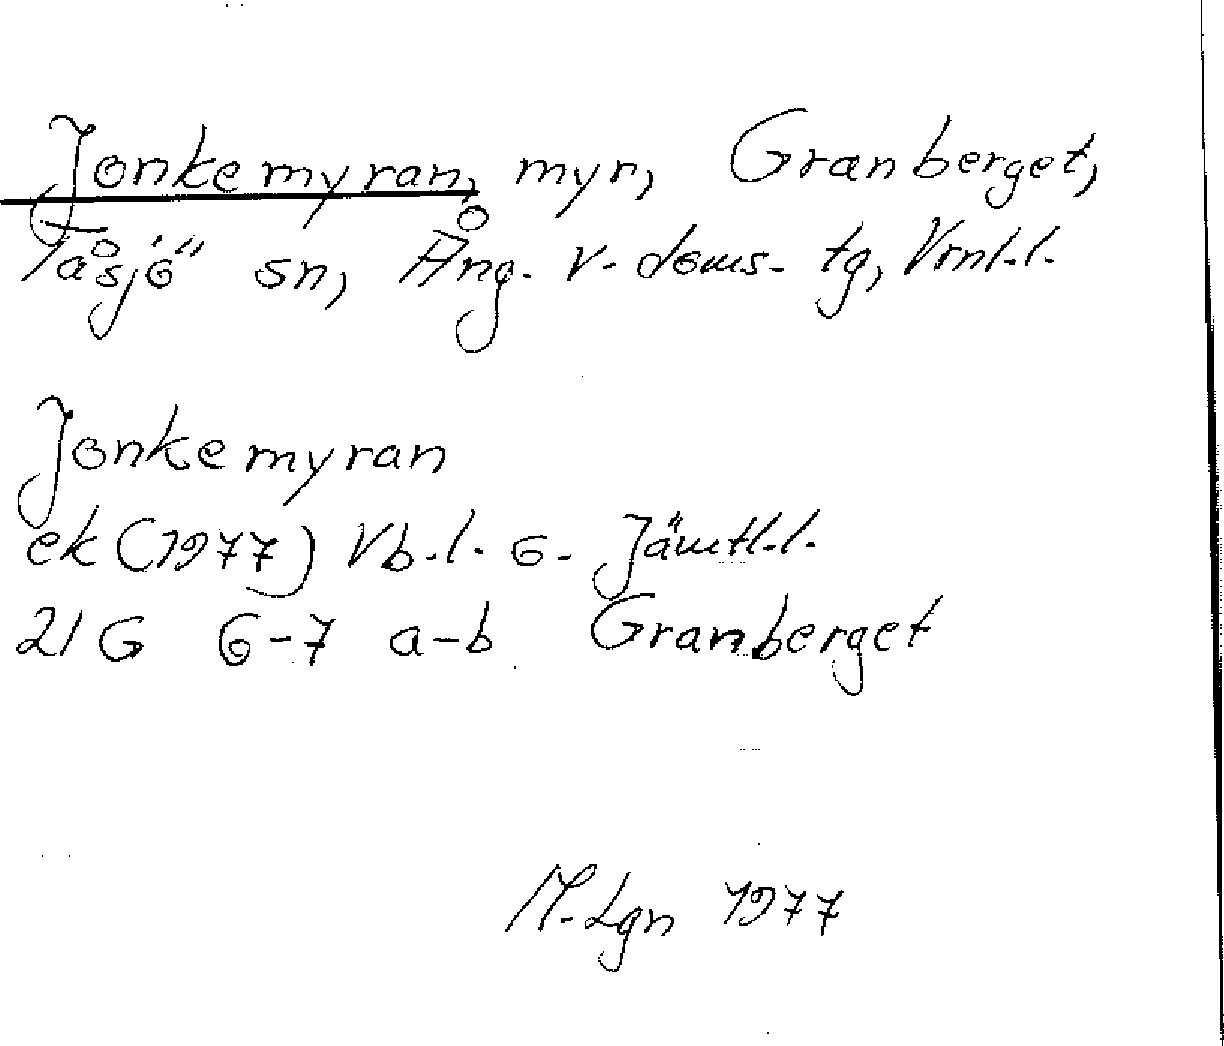 Jonkemyran, myr, Granberget,
Tåsjö sn, Ång. v. doms. tg, Vrnl.l.
Jonkemyran
ek (1977) Vb.l. o. Jämtl.l.
21 G 6-7 a-b Granberget
M. Lgn 1977